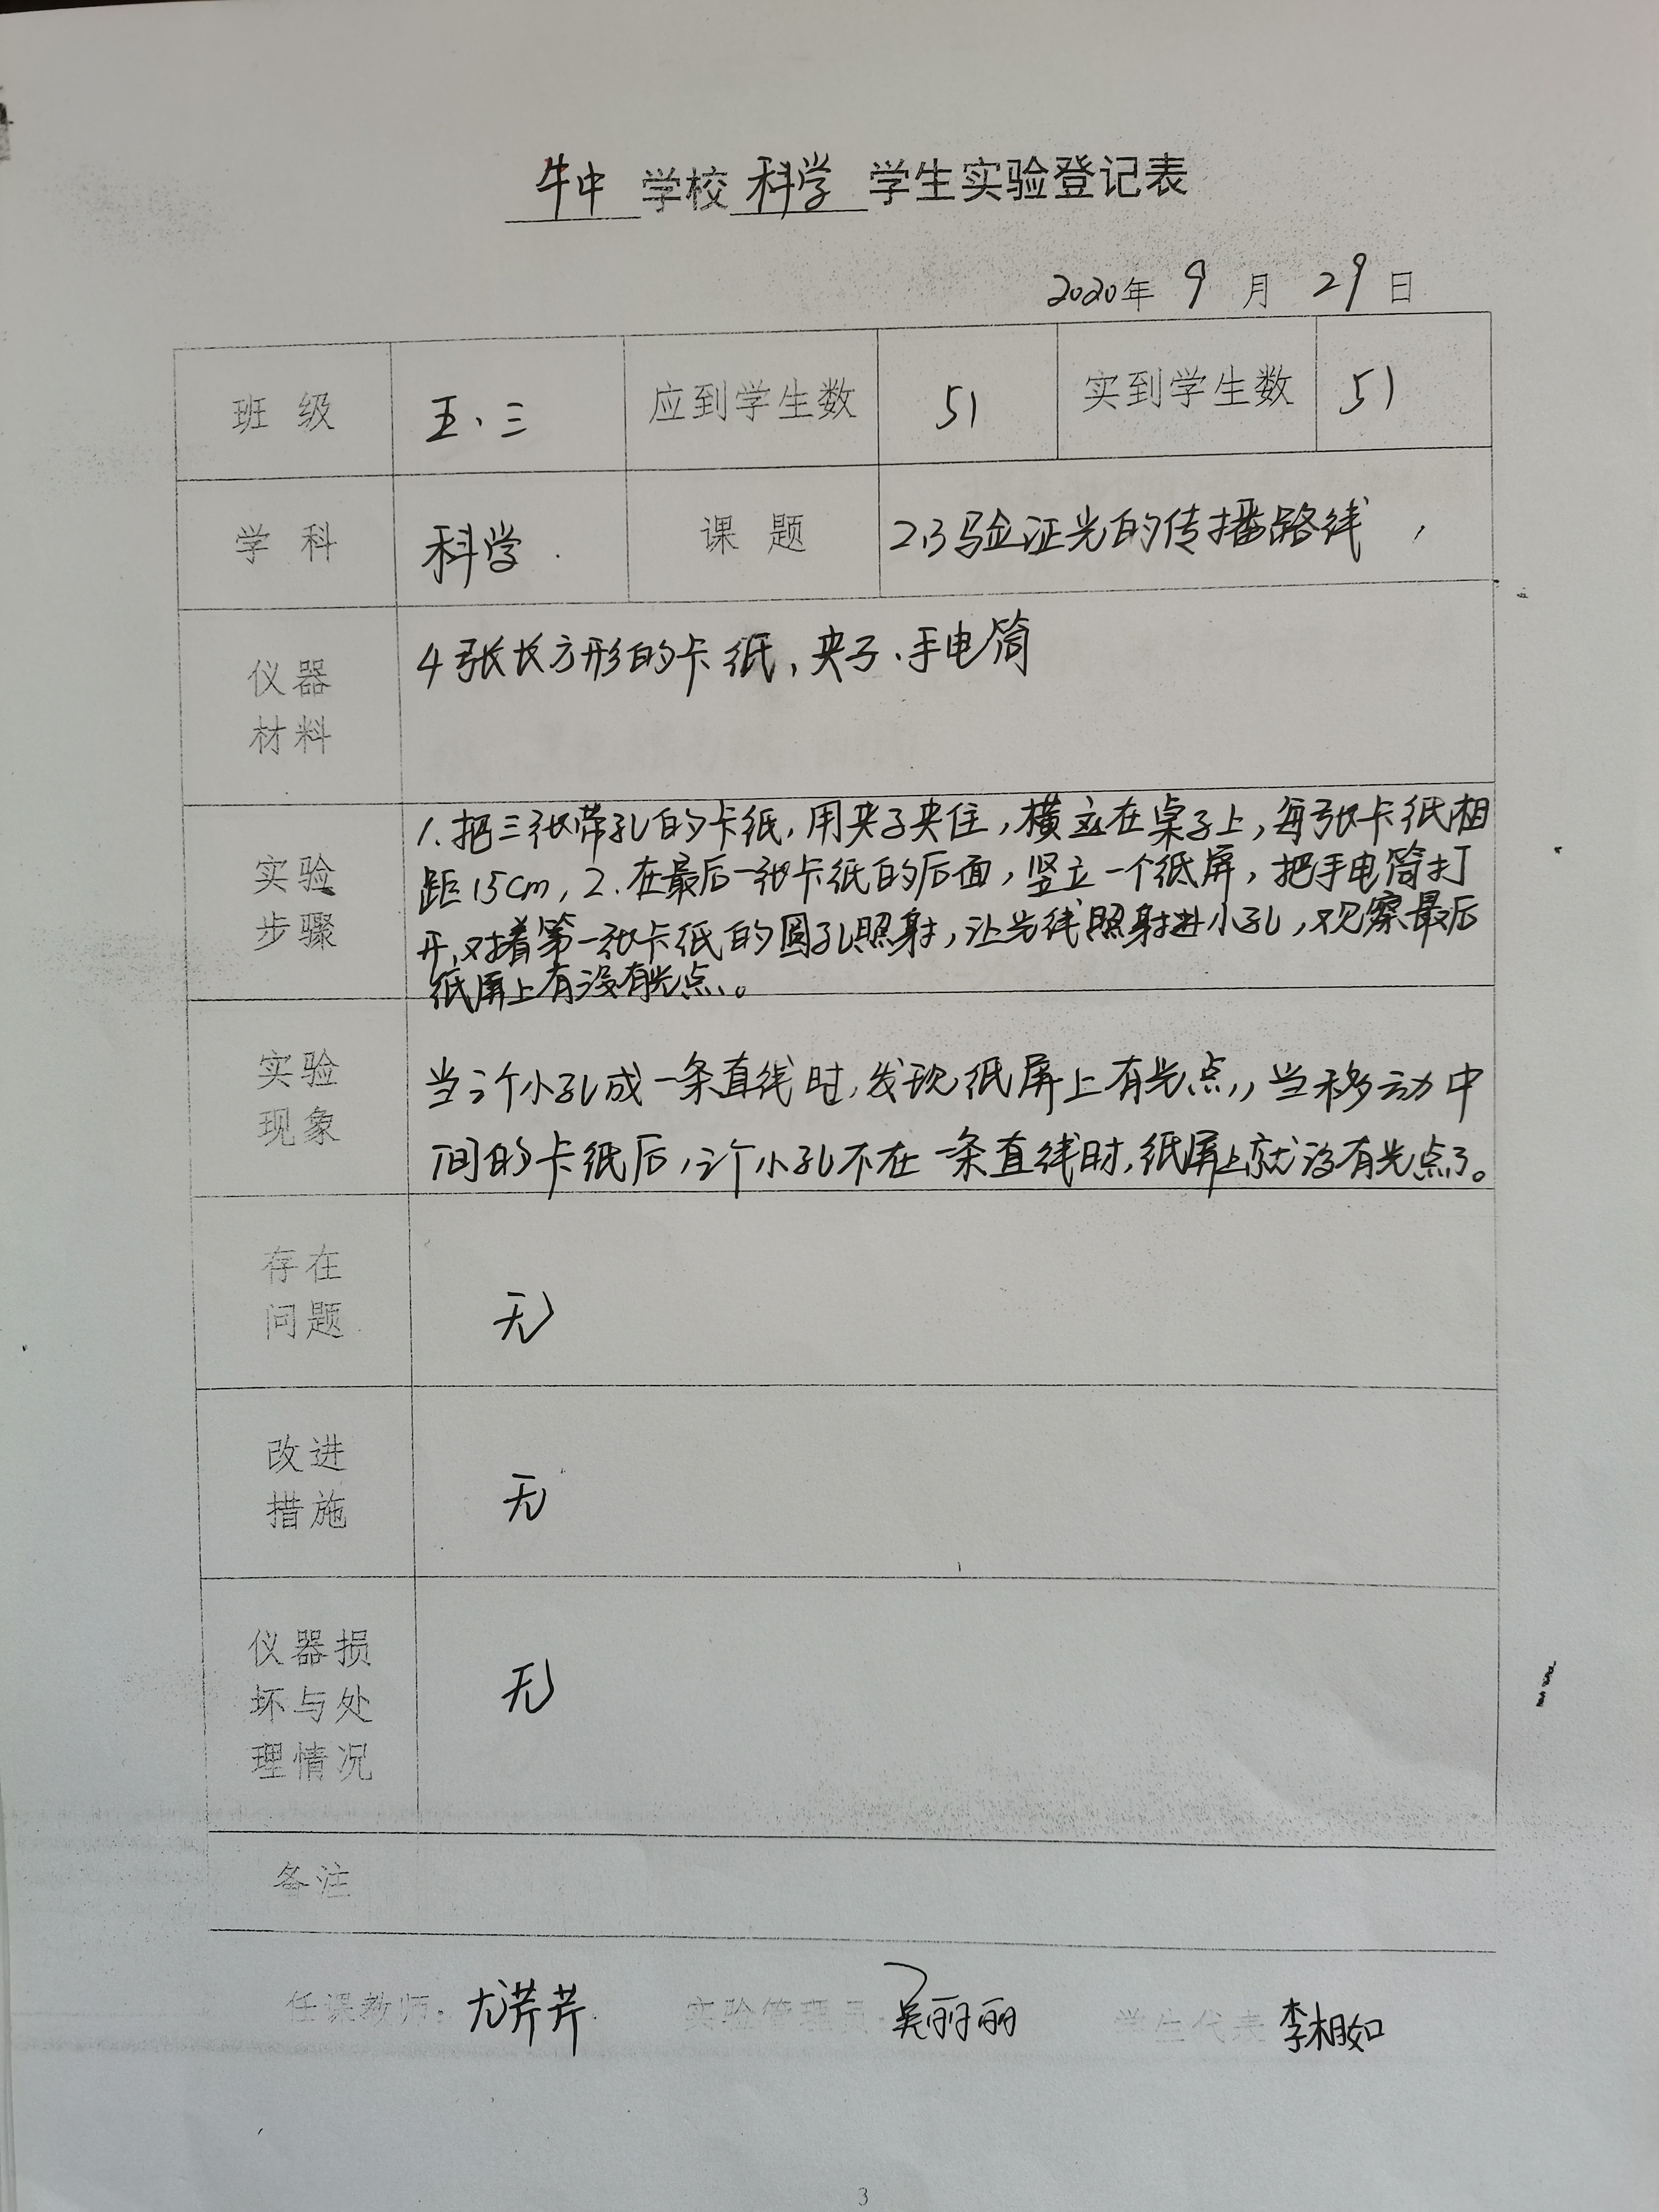 牛中 学校 科学 学生实验登记表
2020年 9 月 29 日
班 级 五、三 应到学生数 51 实到学生数 51
学 科 科学 课 题 2.3验证光的传播路线
仪器
材料
4张长方形的卡纸、夹子、手电筒
实验
步骤
1.把三张带孔的卡纸,用夹子夹住,横立在桌子上,每张卡纸相
距15cm,2.在最后一张卡纸的后面,竖立一个纸屏,把手电筒打
开,对着第一张卡纸的圆孔照射,让光线照射进小孔,观察最后
纸屏上有没有光点。
实验
现象
当三个小孔成一条直线时,发现纸屏上有光点,当移动中
间的卡纸后,三个小孔不在一条直线时,纸屏上就没有光点了。
存在
问题
无
改进
措施
无
仪器损
坏与处
理情况
无
备注
任课教师: 尤芹芹 实验管理员: 吴丽丽 学生代表 李相如
3